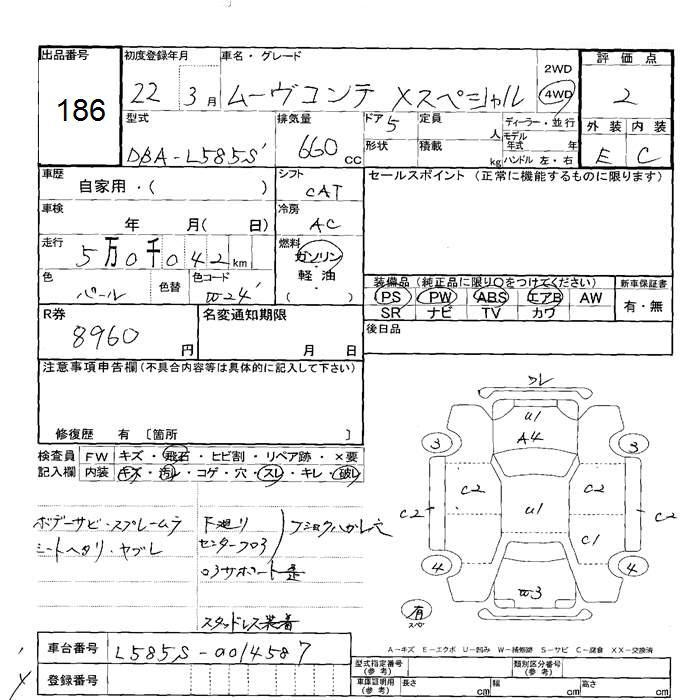 出品番号
186
初度登録年月
22 3月
車名・グレード
ムーヴコンテ Xスペシャル
2WD
4WD
評価点
2
外装 内装
E C
型式
DBA-L585S
排気量
660 cc
ドア 5
形状
定員 人
積載 kg
ディーラー・並行
モデル年式 年
ハンドル 左・右
車歴
自家用・( )
シフト
CAT
セールスポイント (正常に機能するものに限ります)
車検
年 月( 日)
冷房
AC
走行
5万0千042km
燃料
ガソリン
軽・油
( )
色
パール
色替
色コード
W24
装備品 (純正品に限り○をつけてください)
PS PW ABS エアB AW
SR ナビ TV カワ
新車保証書
有・無
R券
8960円
名変通知期限
月 日
後日品
注意事項申告欄(不具合内容等は具体的に記入して下さい)
修復歴 有 〔箇所 〕
検査員記入欄
FW キズ・飛石・ヒビ割・リペア跡・×要
内装 キズ・汚れ・コゲ・穴・スレ・キレ・破れ
ボデーサビ・スプレームラ
シートヘタリ・ヤブレ
下廻り
センターフロア
スタッドレス装着
ワレ
U1
A4
3
3
C2
C2
C2
U1
C2
C1
4
4
W3
有
スペ
車台番号
L585S-0014587
登録番号
A-キズ E-エクボ U-凹み W-補修跡 S-サビ C-腐食 XX-交換済
型式指定番号(参考)
類別区分番号(参考)
車庫証明用(参考)
長さ cm
幅 cm
高さ cm